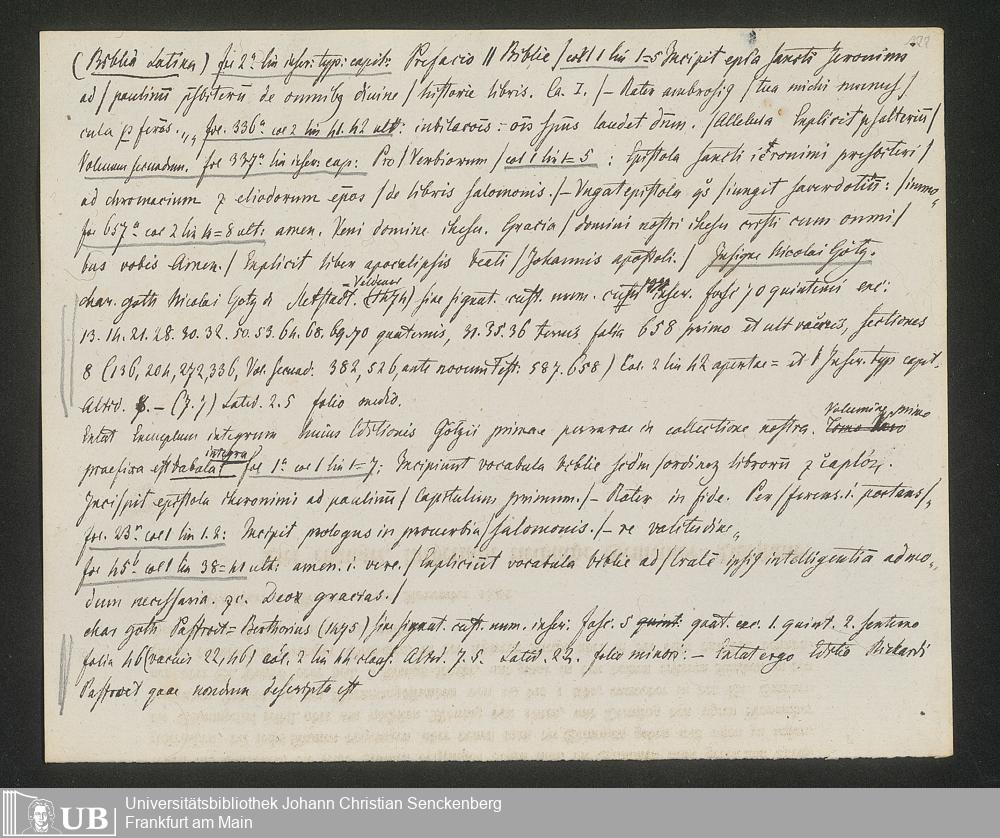 (Biblia Latina) fol 2a lin infer: typ: capit: Prefacio || Biblie / col 1 lin 1=5 Incipit epla sancti Jeronimi
ad / paulinū p̄sbiterū de omnibꝫ divine / historie libris. Ca. I. /– Rater ambrosiꝯ / tua michi munus/
cula ꝑ ferēs. „ fol. 336a col 2 lin 41.42 ult: iubilacōīs: oīs spūs laudet dnm. / Alleluia Explicit psalteriū /
Volumen secundum. fol 337a lin infer: cap: Pro / Verbiorum / col 1 lin 1=5 : Epistola sancti ieronimi presbiteri /
ad chromacium ꝛ eliodorum epos / de libris salomonis. /– Ungat epistola qs / iungit sacerdotiū: / immo „
fol 657a col 2 lin 4=8 ult: amen. Veni domine ihesu. Gracia / domini nostri ihesu cristi cum omni /
bus vobis Amen. / Explicit liber apocalipsis beati / Johannis apostoli. / Insigne Nicolai Götz.
char. goth Nicolai Götz de Sletstadt. = Veldener (1474) sine signat. cust. num. infer. fasc 70 quinternis exc:
13. 14. 21. 28. 30. 32. 50. 53. 64. 68. 69. 70 quaternis, 31. 35. 36 ternis folia 658 primo et ult vacuis, sectiones
8 (136, 204, 272, 336, Vol. secund. 382, 526, ante novum Test: 587. 658) Col. 2 lin 42 apertae = et Infer. typ capit.
Altid. 8. – (7. 7) Latid. 2. 5 folio medio.
Extat Exemplum integrum huius Editionis Götzii primae perrarae in collectione nostra. Volumine primo
praefixa est tabula integra fol 1a col 1 lin 1=7: Incipiunt vocabula biblie scdm / ordinez librorū ꝛ caplōꝝ.
Inci / pit epistola iheronimi ad paulinū / Capitulum primum. /– Rater in fide. Per / ferens. i. portans / „
fol. 23a col 1 lin 1. 2: Incipit prologus in proverbia / salomonis. /– re valitudine „
fol 45b col 1 lin 38=41 ult: amen. i. vere. / Expliciūt vocabula biblie ad / lralē ipsiꝯ intelligentiā admo „
dum necessaria. ꝛc. Deo gracias. /
char goth Paffroet = Berthorius (1475) sine signat. cust. num. infer. fasc. 5 quat. exc. 1. quint. 2. senterno
folia 46 (vacuis 22, 46) col. 2 lin 44 claus. Altid. 7. 5. Latid. 2 2. folio minori: – Extat ergo Editio Richardi
Paffroet quae nondum descripta est
Universitätsbibliothek Johann Christian Senckenberg
Frankfurt am Main
UB